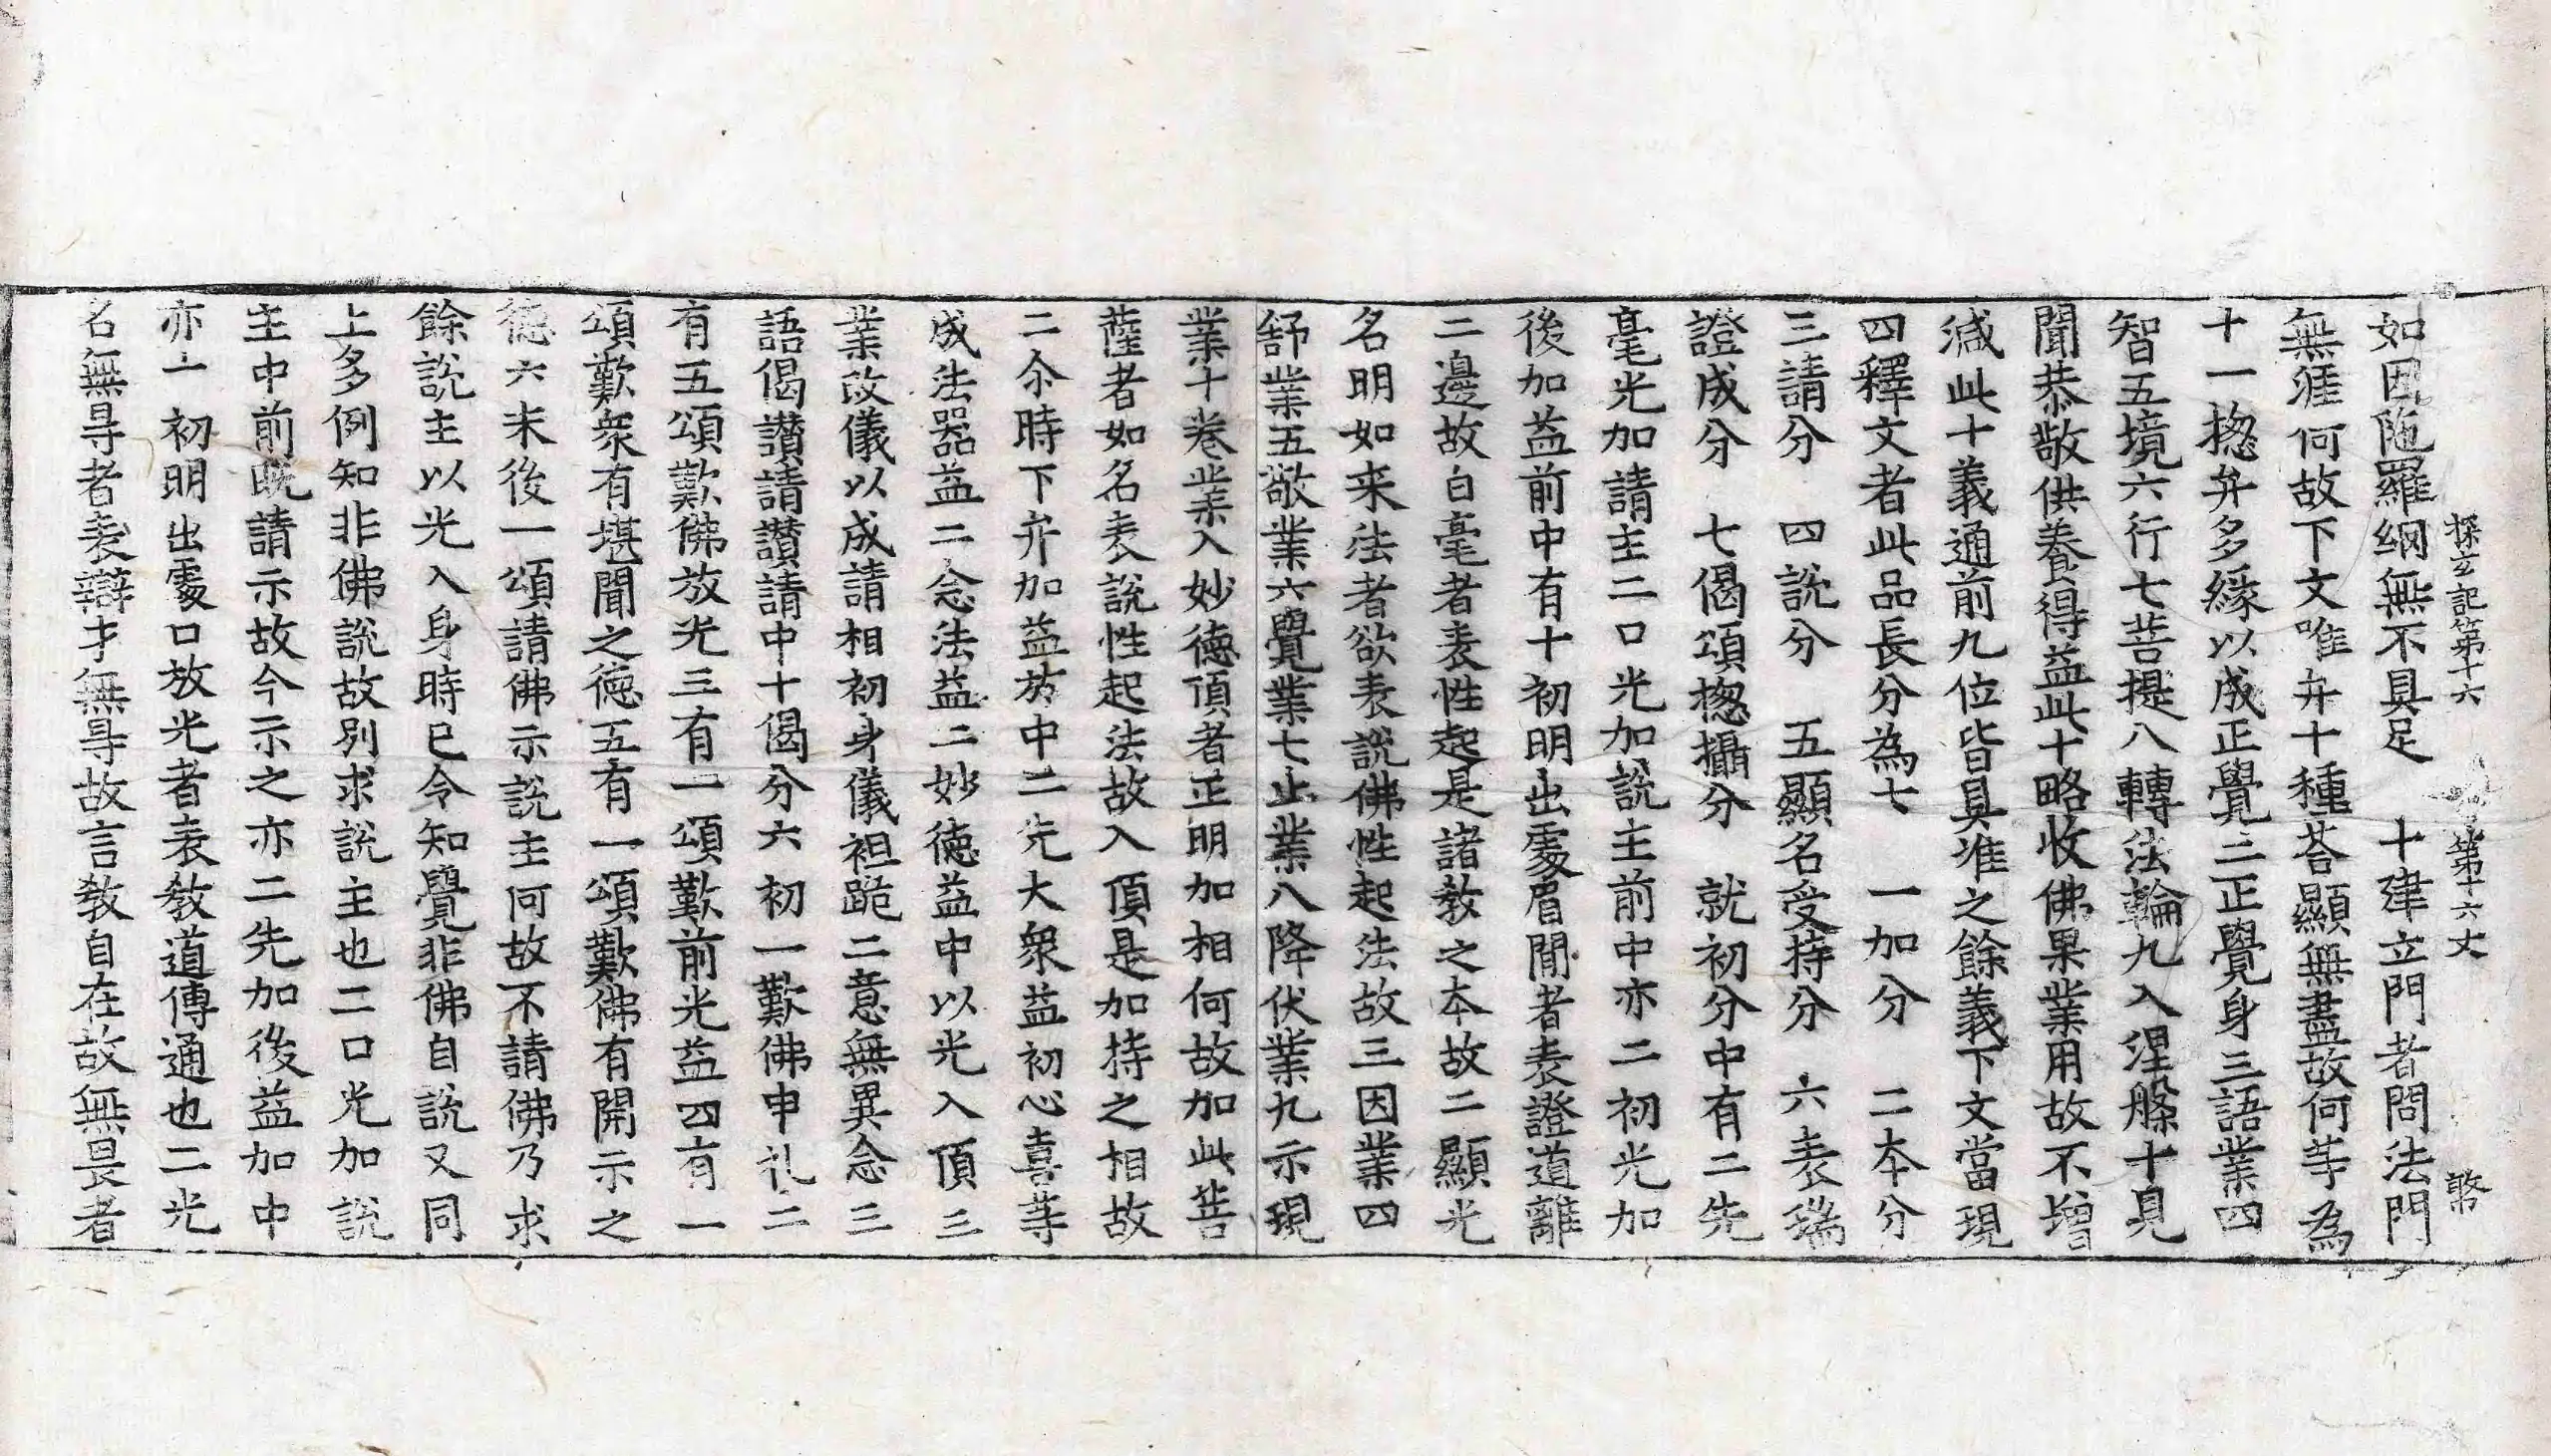 探玄記第十六　第十六丈　弊
如因陁羅網無不具足　十建立門者問法門
無涯何故下文唯弁十種荅顯無盡故何䓁為
十一揔弁多緣以成正覺二正覺身三語業四
智五境六行七菩提八轉法輪九入涅槃十見
聞恭敬供養得益此十略收佛果業用故不增
減此十義通前九位皆具准之餘義下文當現
四釋文者此品長分為七　一加分　二本分
三請分　四說分　五顯名受持分　六表瑞
證成分　七偈頌揔攝分　就初分中有二先
毫光加請主二口光加說主前中亦二初光加
後加益前中有十初明出處眉間者表證道離
二邊故白毫者表性起是諸教之本故二顯光
名明如来法者欲表說佛性起法故三因業四
舒業五敬業六覺業七止業八降伏業九示現
業十卷業入妙德頂者正明加相何故加此菩
薩者如名表說性起法故入頂是加持之相故
二尒時下弁加益於中二先大衆益初心喜䓁
成法器益二念法益二妙德益中以光入頂三
業改儀以成請相初身儀袒跪二意無異念三
語偈讃請讃請中十偈分六初一歎佛申礼二
有五頌歎佛放光三有一頌歎前光益四有一
頌歎衆有堪聞之德五有一頌歎佛有開示之
德六末後一頌請佛示說主何故不請佛乃求
餘說主以光入身時已令知覺非佛自說又同
上多例知非佛說故別求說主也二口光加說
主中前既請示故今示之亦二先加後益加中
亦十初明出處口放光者表教道傳通也二光
名無㝵者表辯才無㝵故言教自在故無畏者